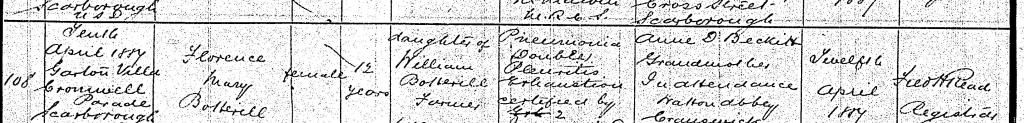 Scarborough
U S D
M.R.C.S.
Cross Street
Scarborough
108
Tenth
April 1887
Garton Villa
Cromwell
Parade
Scarborough
Florence
Mary
Botterill
female
12
years
daughter of
William
Botterill
Farmer
Pneumonia
Double
Pleuritis
Exhaustion
certified by
Anne D. Beckitt
Grandmother
In attendance
Watton Abbey
Cranswick
Twelfth
April
1887
Registrar